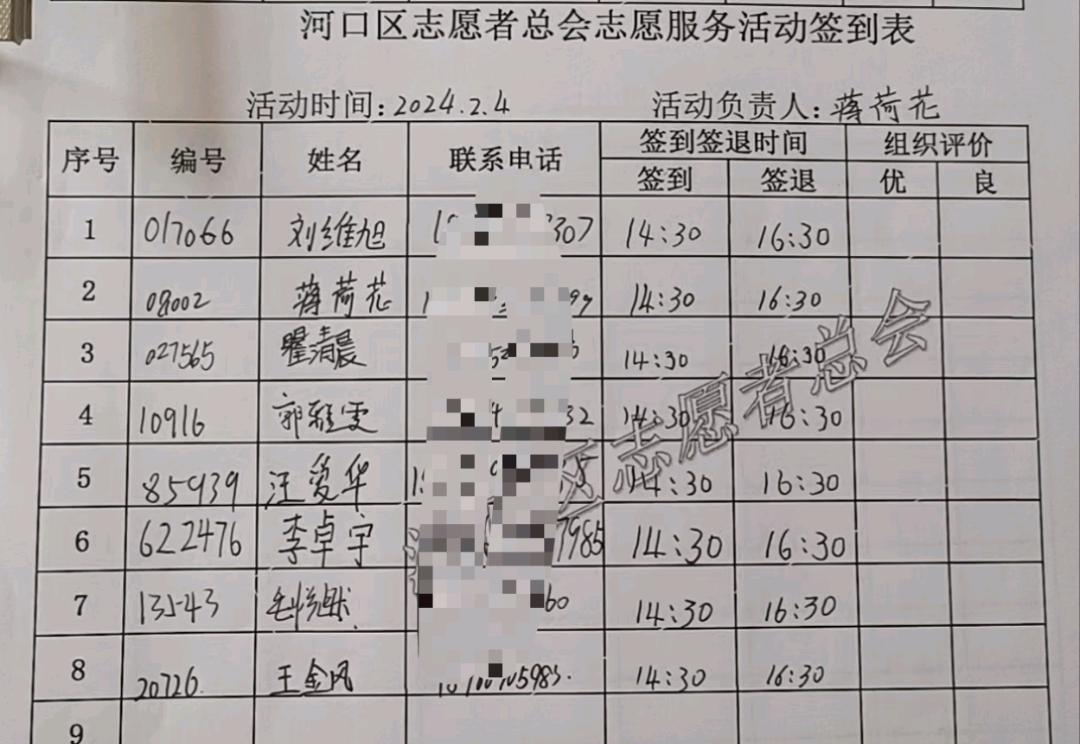 河口区志愿者总会志愿服务活动签到表
活动时间:2024.2.4 活动负责人:蒋荷花
序号 编号 姓名 联系电话 签到签退时间 组织评价
签到 签退 优 良
1 017066 刘维旭 307 14:30 16:30
2 08002 蒋荷花 14:30 16:30
3 027565 瞿清晨 14:30 16:30
4 10916 郭雅雯 32 14:30 16:30
5 85939 汪爱华 14:30 16:30
6 622476 李卓宇 7985 14:30 16:30
7 13543 60 14:30 16:30
8 20726 王金凤 5985. 14:30 16:30
9
区志愿者总会